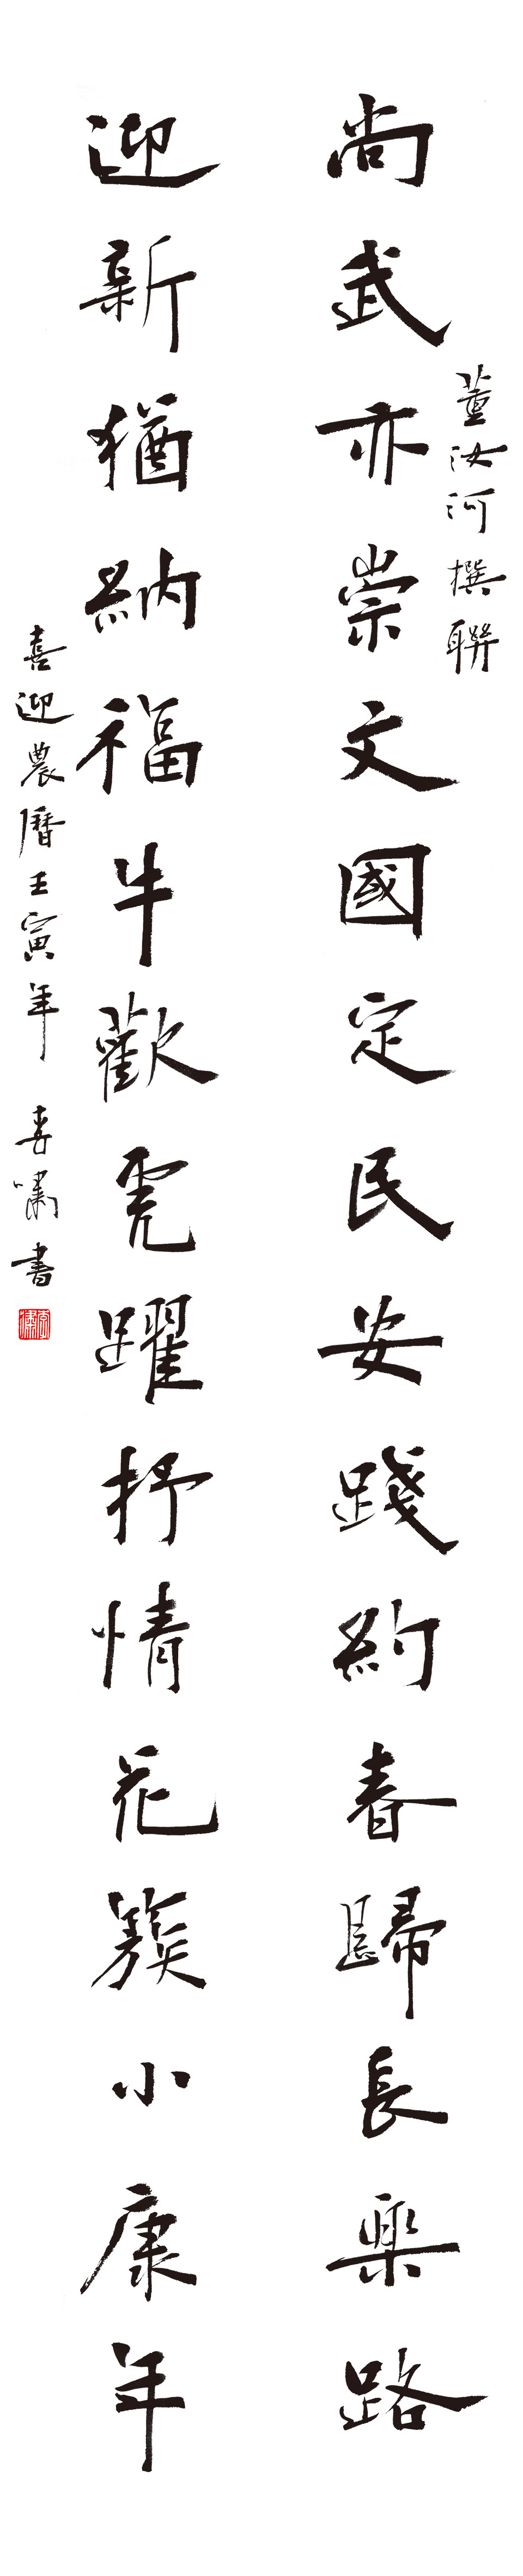 董汝河撰聯
尚武亦崇文國定民安踐約春歸長樂路
迎新猶納福牛歡虎躍抒情花簇小康年
喜迎農曆壬寅年 春嘯書